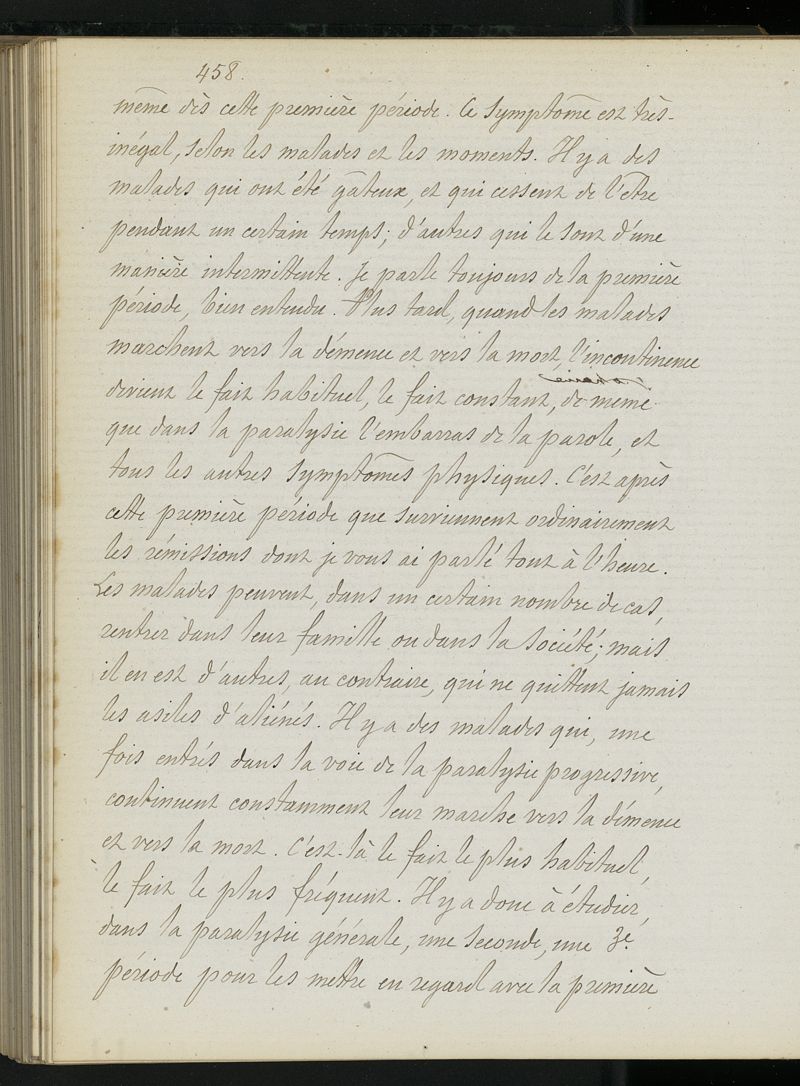 458.
même dès cette première période. Ce symptôme est très-
inégal, selon les malades et les moments. Il y a des
malades qui ont été gâteux, et qui cessent de l'être
pendant un certain temps; d'autres qui le sont d'une
manière intermittente. Je parle toujours de la première
période, bien entendu. Plus tard, quand les malades
marchent vers la démence et vers la mort, l'incontinence
devient le fait habituel, le fait constant, de même
que dans la paralysie l'embarras de la parole, et
tous les autres symptômes physiques. C'est après
cette première période que surviennent ordinairement
les rémissions dont je vous ai parlé tout à l'heure.
Les malades peuvent, dans un certain nombre de cas,
rentrer dans leur famille ou dans la société; mais
il en est d'autres, au contraire, qui ne quittent jamais
les asiles d'aliénés. Il y a des malades qui, une
fois entrés dans la voie de la paralysie progressive,
continuent constamment leur marche vers la démence
et vers la mort. C'est là le fait le plus habituel,
le fait le plus fréquent. Il y a donc à étudier,
dans la paralysie générale, une seconde, une 3e
période pour les mettre en regard avec la première